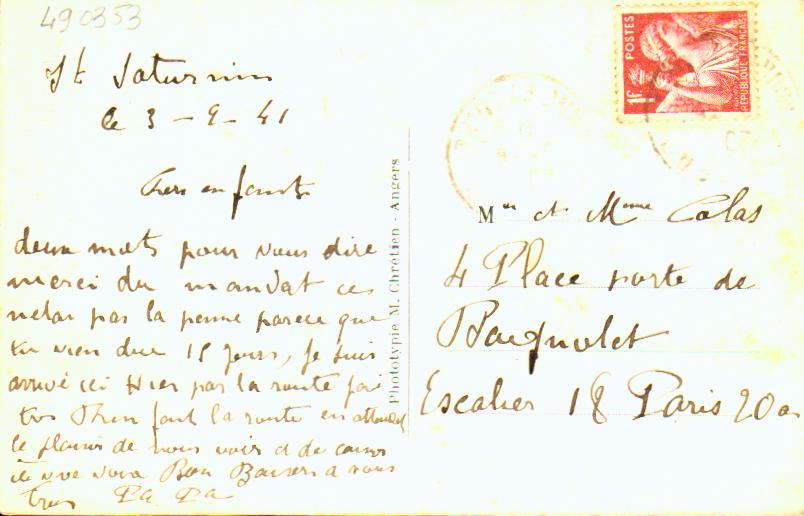 490353
St Saturnin
le 3 - 9 - 41
Chers enfants
deux mots pour vous dire
merci du mandat ces
netai pas la penne parce que
tu vien dice 15 jours, je suis
arrivé ici Hier par la route
la route en attendent
le plaisir de vous voir et de
Bon Baisers a vous
Tous Pa Pa
Phototypie M. Chrétien - Angers
POSTES
1F
RÉPUBLIQUE FRANÇAISE
Mr et Mme Colas
4 Place porte de
Bagnolet
Escalier 18 Paris 20